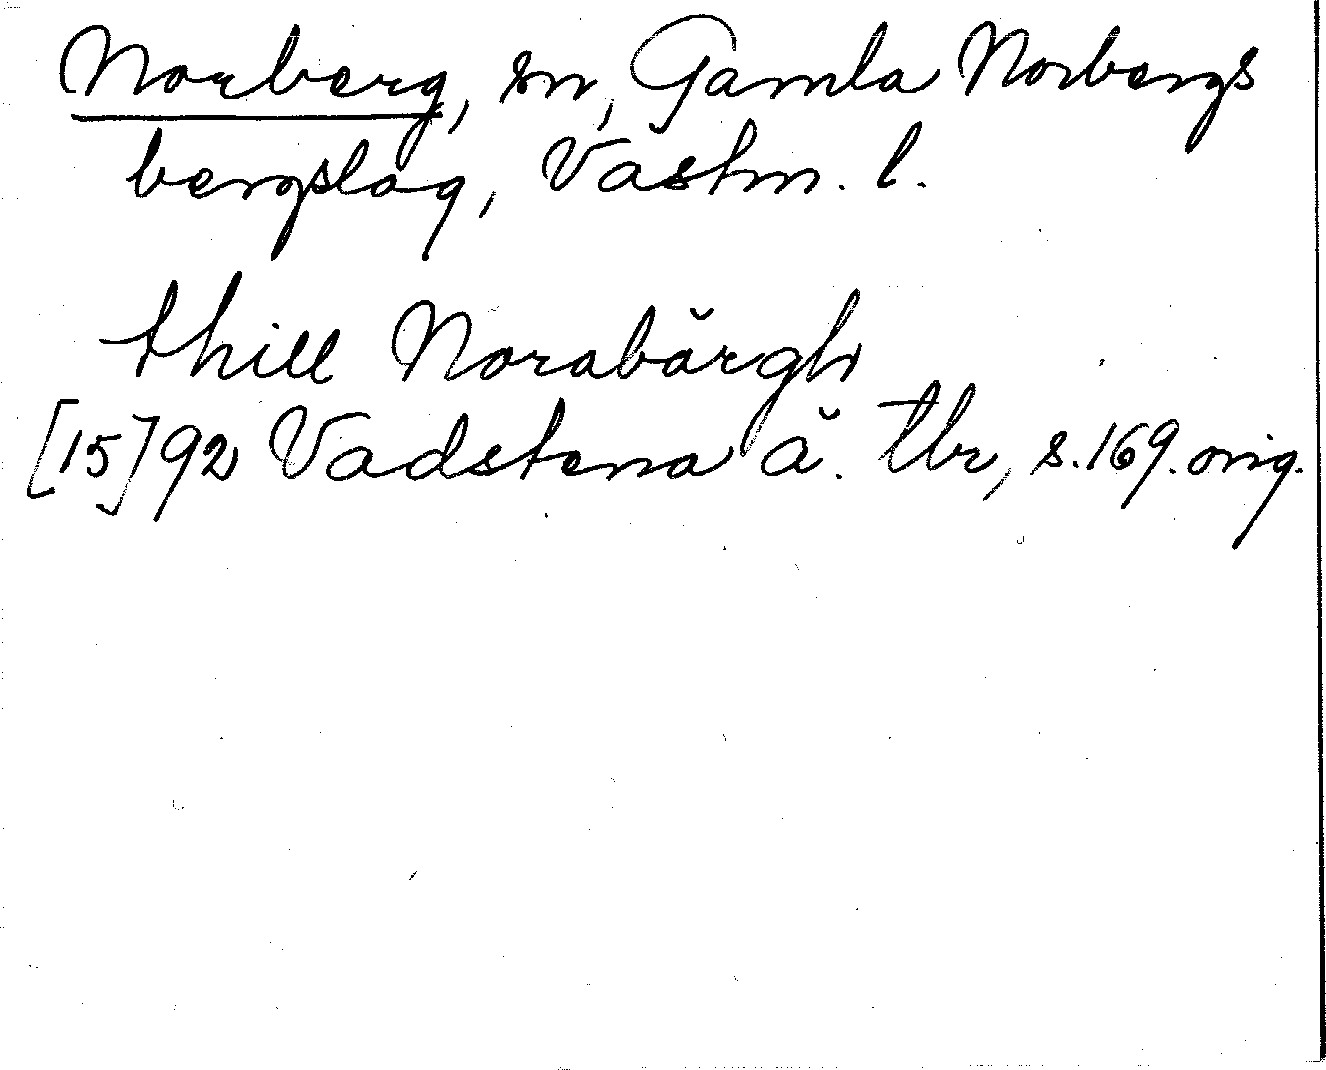 Norberg, sn, Gamla Norbergs
bergslag, Västm. l.
thill Norabärgh
[15]92 Vadstena ä. tbr, s. 169. orig.